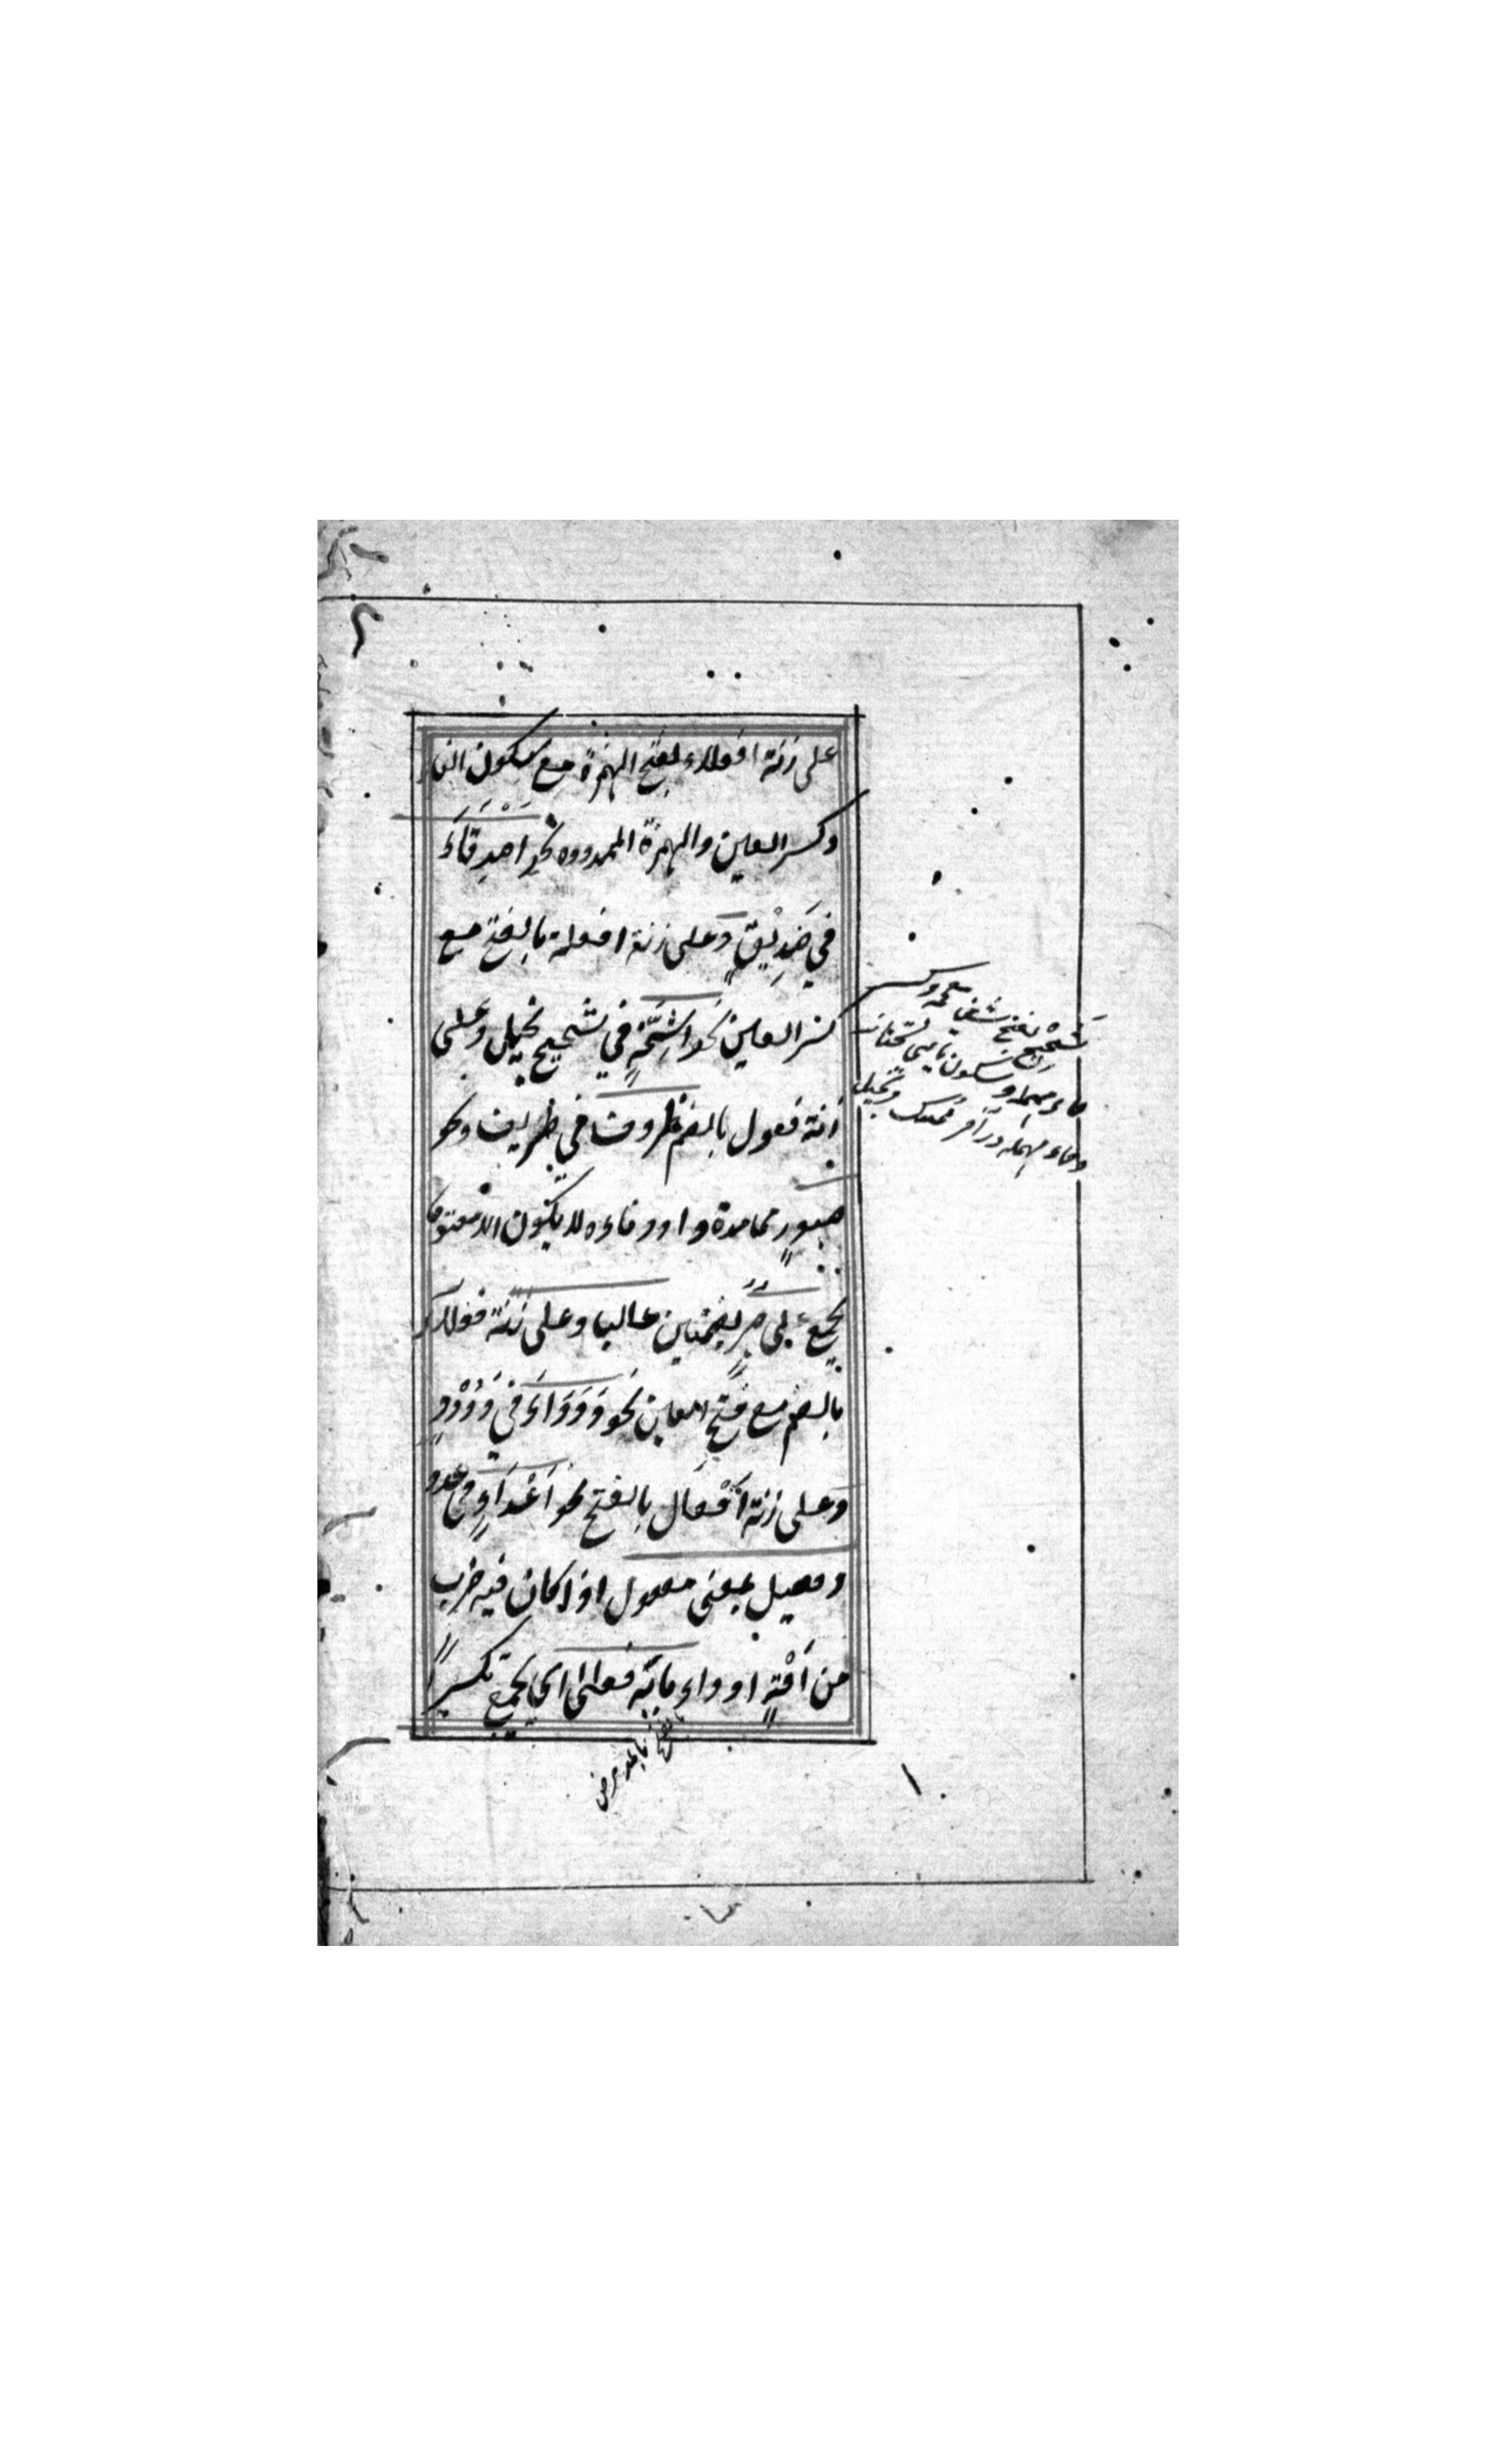 على زنة افعلاء بفتح الهمزة مع سكون الفاء
وكسر العين والهمزة الممدودة نحو اَصْدِقَاءَ
في صَدِيْقٍ وَعلى زنة افعلة بالفتح مع
كسر العين نحو اَشِحَّةٍ في شحيح بخيل وعلى
زنة فعول بالضم ظروف في ظريف ونحو
صبورٍ مما مدة واو وفاءه لا يكون الا مفتوحا
يجمع على صُبُرٍ بضمتين غالبا وعلى زنة فعلاء
بالضم مع فتح العين نحو وُدَدَاءَ في وَدُوْدٍ
وعلى زنة اَفْعَال بالفتح نحو اَعْدَاءٍ في عدو
وفعيل بمعنى مفعول اذا كان فيه ضرب
من اٰفَةٍ او داء بابه فعلى اي يجمع تكسيرًا
شَحِيْح بفتح شين معجمه وكسر
حاء مهمله وسكون ياي تحتانيه
وحاء مهمله در آخر ممسك وبخيل